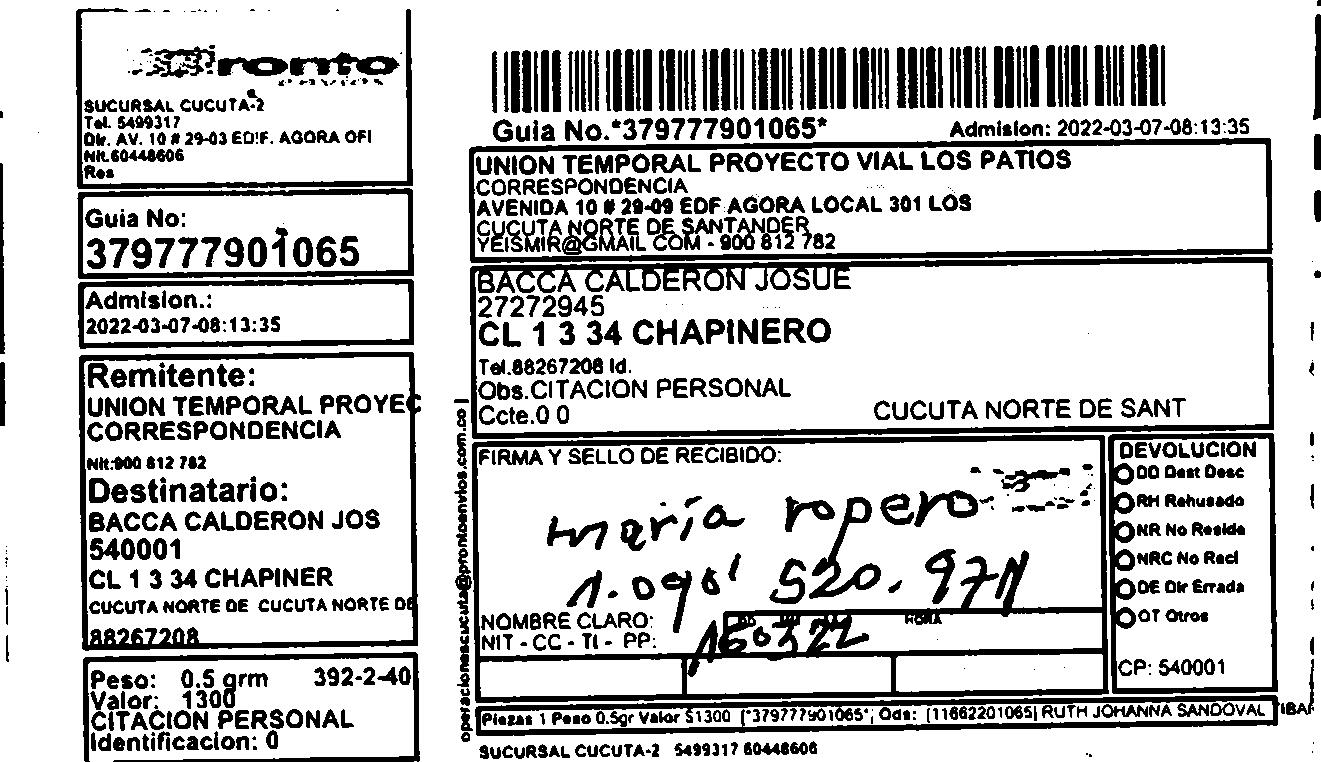 Pronto
envios
SUCURSAL CUCUTA-2
Tel. 5499317
Dir. AV. 10 # 29-03 EDIF. AGORA OFI
Nit.60448606
Res
Guia No:
379777901065
Admision.:
2022-03-07-08:13:35
Remitente:
UNION TEMPORAL PROYEC
CORRESPONDENCIA
Nit:900 812 782
Destinatario:
BACCA CALDERON JOS
540001
CL 1 3 34 CHAPINER
CUCUTA NORTE DE CUCUTA NORTE DE
88267208
Peso: 0.5 grm 392-2-40
Valor: 1300
CITACION PERSONAL
Identificacion: 0
Guia No.*379777901065* Admision: 2022-03-07-08:13:35
UNION TEMPORAL PROYECTO VIAL LOS PATIOS
CORRESPONDENCIA
AVENIDA 10 # 29-09 EDF AGORA LOCAL 301 LOS
CUCUTA NORTE DE SANTANDER
YEISMIR@GMAIL COM - 900 812 782
BACCA CALDERON JOSUE
27272945
CL 1 3 34 CHAPINERO
Tel.88267208 Id.
Obs.CITACION PERSONAL
Ccte.0 0 CUCUTA NORTE DE SANT
operacionescucuta@prontoenvios.com.co |
FIRMA Y SELLO DE RECIBIDO:
maría ropero
1.090' 520.971
NOMBRE CLARO:
NIT - CC - TI - PP:
HORA
160322
DEVOLUCION
DD Dest Desc
RH Rehusado
NR No Reside
NRC No Recl
DE Dir Errada
OT Otros
CP: 540001
Piezas 1 Peso 0.5gr Valor $1300 [*379777901065*; Ods: [11662201065] RUTH JOHANNA SANDOVAL TIBA
SUCURSAL CUCUTA-2 5499317 60448606